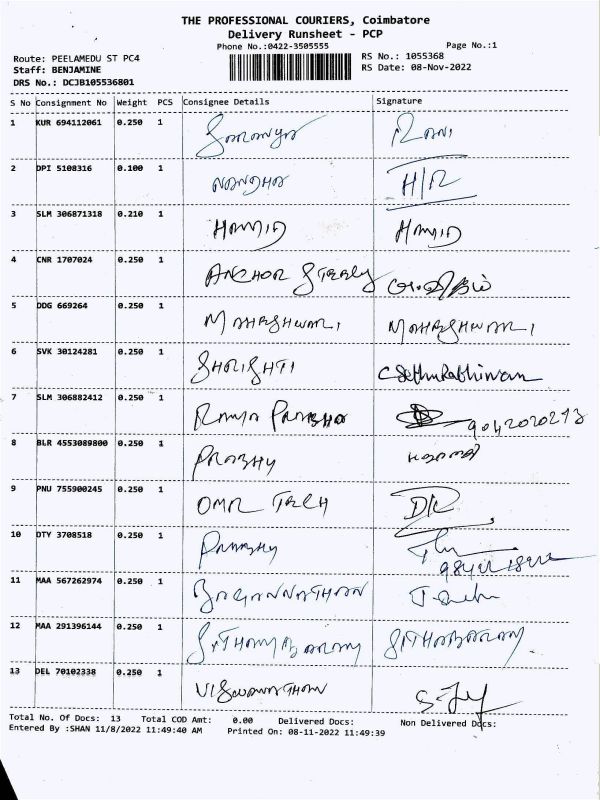 THE PROFESSIONAL COURIERS, Coimbatore
Delivery Runsheet - PCP
Phone No.:0422-3505555 Page No.:1
Route: PEELAMEDU ST PC4 RS No.: 1055368
Staff: BENJAMINE RS Date: 08-Nov-2022
DRS No.: DCJB105536801
S No Consignment No Weight PCS Consignee Details Signature
1 KUR 694112061 0.250 1 Saranya RANI
2 DPI 5108316 0.100 1 NANDHA H/R
3 SLM 306871318 0.210 1 HAMID HAMID
4 CNR 1707024 0.250 1 ANCHOR
5 DDG 669264 0.250 1 MAHESHWARI MAHESHWARI
6 SVK 30124281 0.250 1 SHRISHTI C Sethurathinam
7 SLM 306882412 0.250 1 RAMYA PRABHA
8 BLR 4553089800 0.250 1 PRABHU
9 PNU 755900245 0.250 1 OMR TECH DR
10 DTY 3708518 0.250 1 PRABHU
11 MAA 567262974 0.250 1 JAGANNATHAN
12 MAA 291396144 0.250 1 SITHAMBARAM SITHABARAM
13 DEL 70102338 0.250 1 VISWANATHAN
Total No. Of Docs: 13 Total COD Amt: 0.00 Delivered Docs: Non Delivered Docs:
Entered By :SHAN 11/8/2022 11:49:40 AM Printed On: 08-11-2022 11:49:39